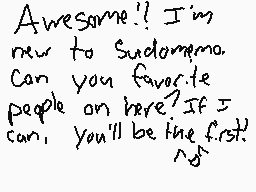 Awesome!! I'm
new to Sudomemo.
Can you favorite
people on here? If I
can, you'll be the first!
^o^